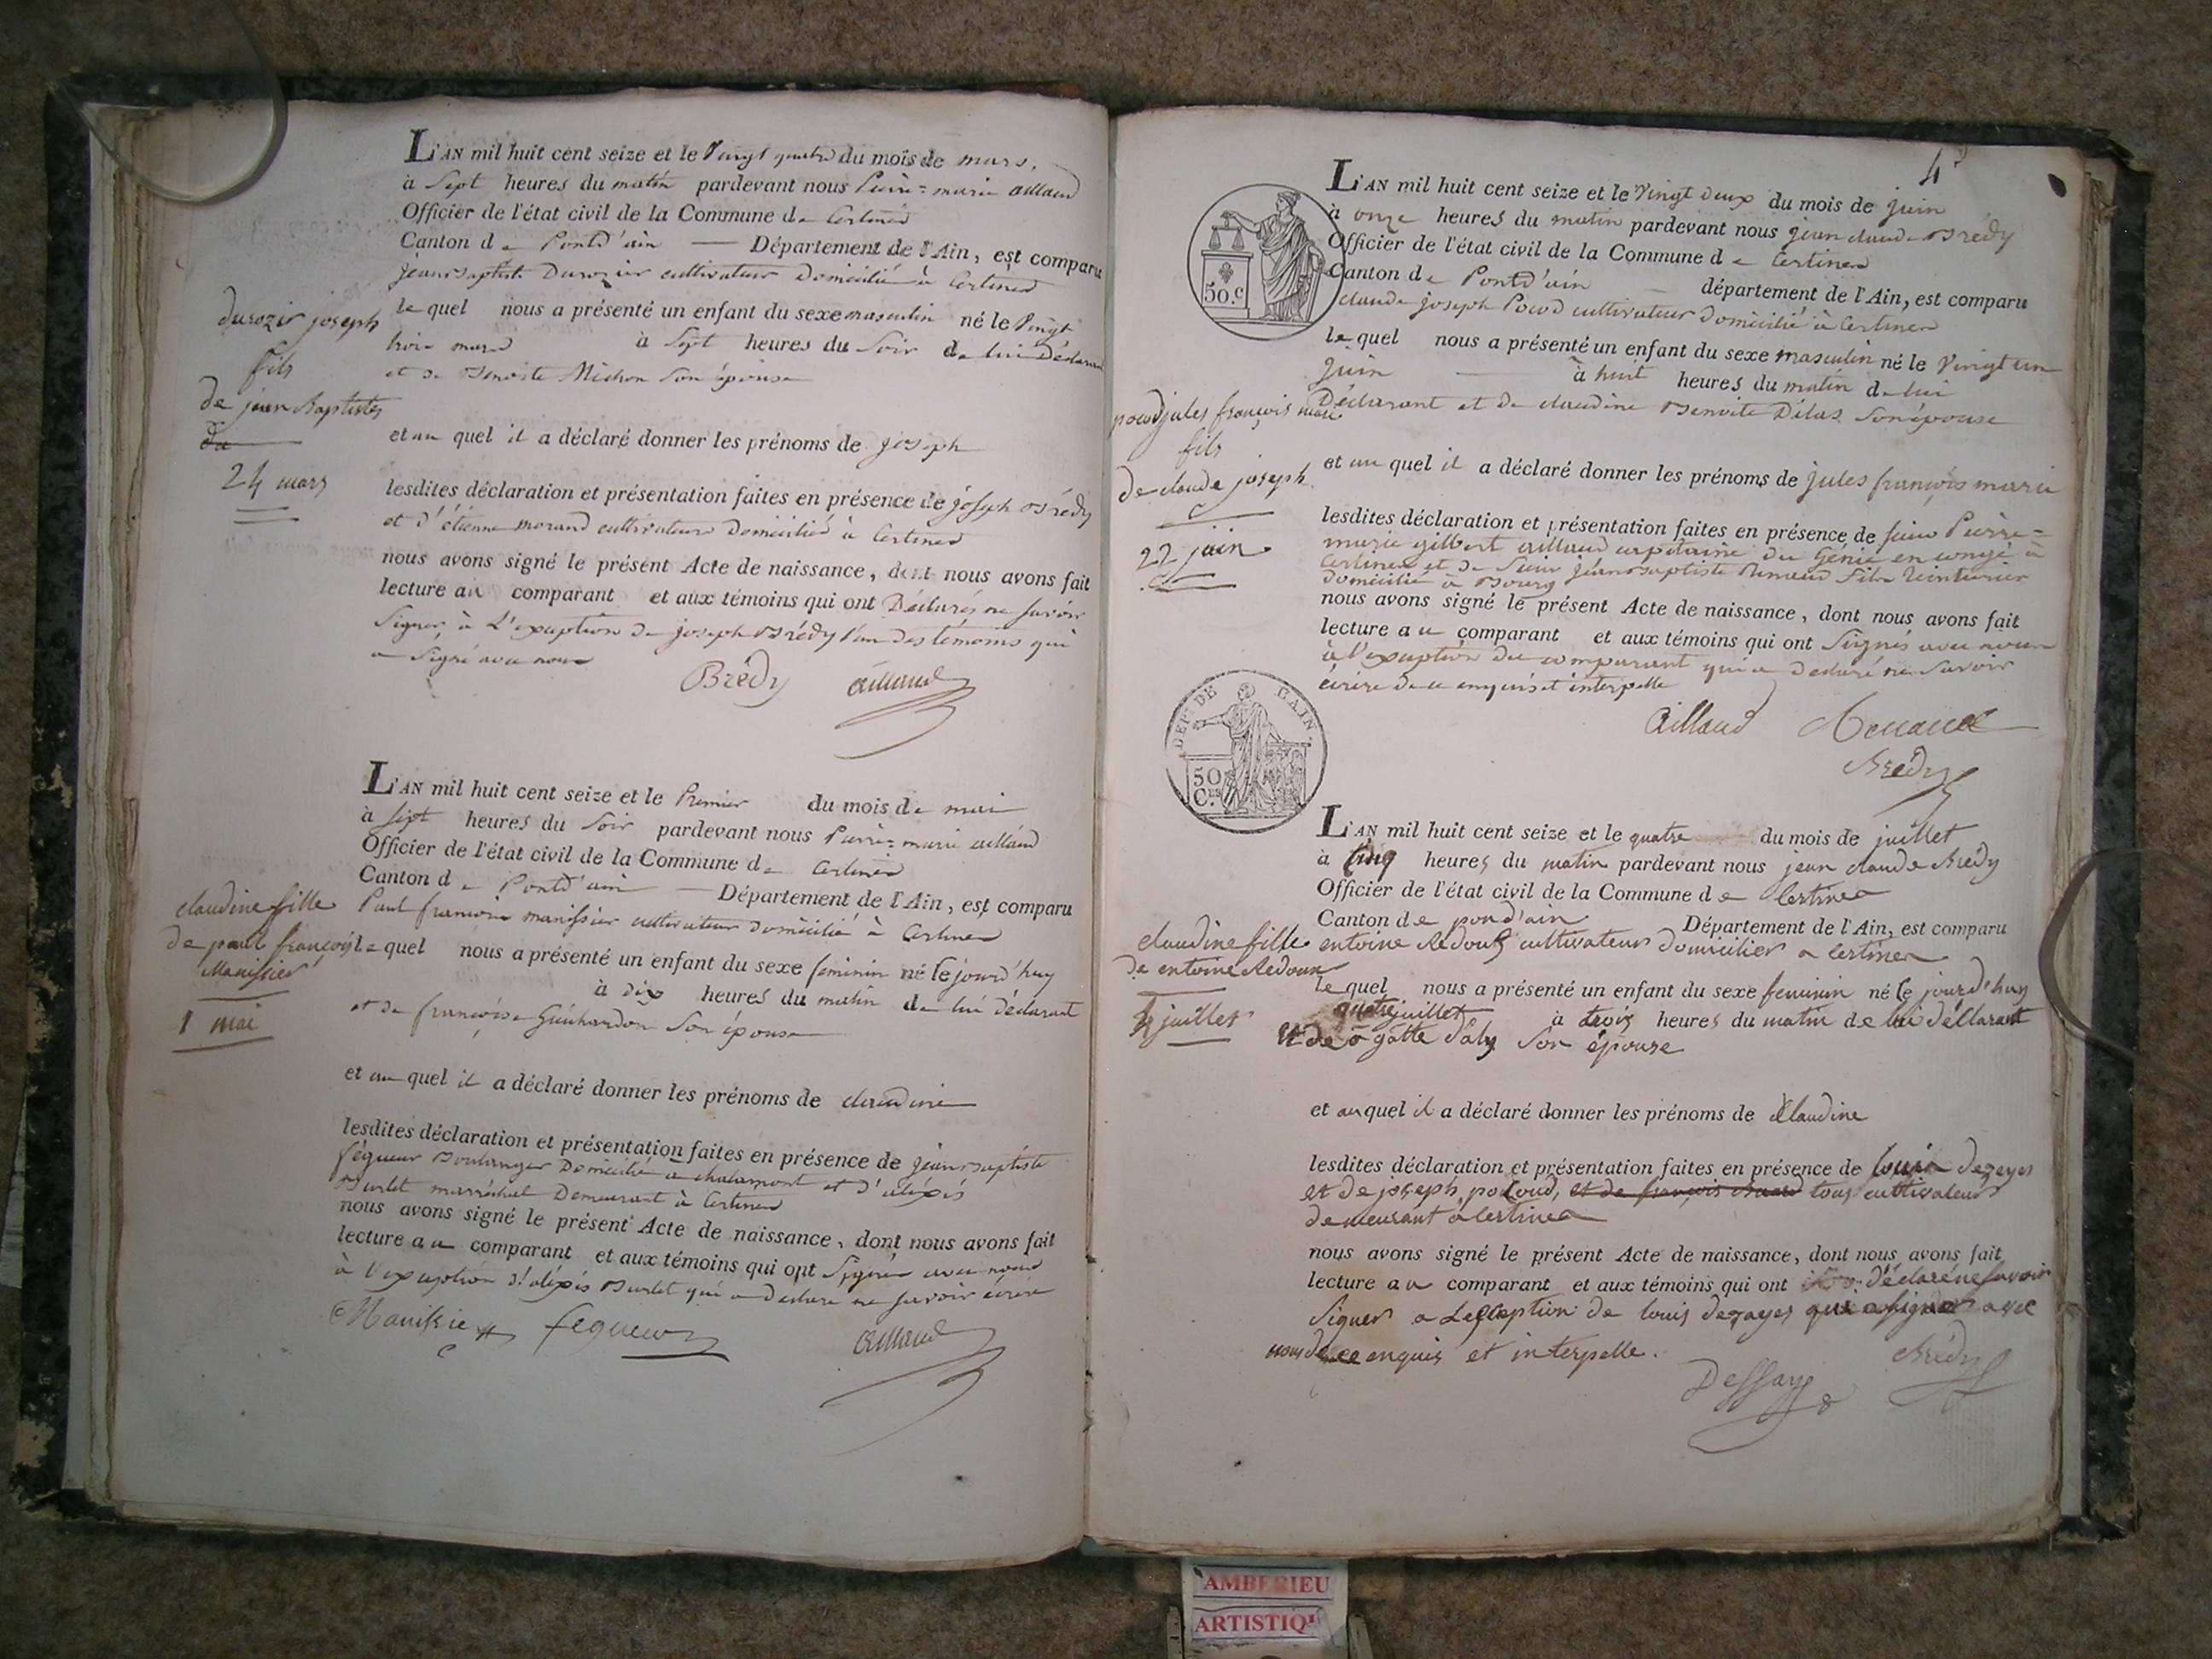 L'AN mil huit cent seize et le Vingt quatre du mois de mars,
à Sept heures du matin pardevant nous Pierre=marie aillaud
Officier de l'état civil de la Commune de Certines
Canton de Pontd'ain — Département de l'Ain, est comparu
jean Baptiste Durozier cultivateur Domicilié à Certines
lequel nous a présenté un enfant du sexe masculin né le Vingt
trois mars à Sept heures du Soir de lui Déclarant
et de Benoite Michon Son épouse
et au quel il a déclaré donner les prénoms de joseph
lesdites déclaration et présentation faites en présence de joseph Brédy
et d'étienne morand cultivateurs Domiciliés à Certines
nous avons signé le présent Acte de naissance, dont nous avons fait
lecture au comparant et aux témoins qui ont Déclarés ne savoir
Signer, à L'exception de joseph Brédy l'un des témoins qui
a Signé avec nous
Brédy aillaud
durozir joseph
fils
de jean Baptistes
du
24 mars
L'AN mil huit cent seize et le Premier du mois de mai
à Sept heures du Soir pardevant nous Pierre=marie aillaud
Officier de l'état civil de la Commune de Certines
Canton de Pontd'ain — Département de l'Ain, est comparu
Paul françois manissier cultivateur domicilié à Certines
lequel nous a présenté un enfant du sexe feminin né le jourd'huy
à dix heures du matin de lui déclarant
et de françoise Guichardon Son épouse
et au quel il a déclaré donner les prénoms de claudine
lesdites déclaration et présentation faites en présence de jean Baptiste
féqueur Boulanger Domicilié a chalamont et d'aléxis
Burlet marréchal Demeurant à Certines
nous avons signé le présent Acte de naissance, dont nous avons fait
lecture au comparant et aux témoins qui ont Signés avec nous
à l'exception d'aléxis Burlet qui a declaré ne savoir écrire
Manissier fequeur aillaud
claudine fille
de paul françois
Manissier
1 mai
4
L'AN mil huit cent seize et le Vingt deux du mois de juin
à onze heures du matin pardevant nous jean claude Brédy
Officier de l'état civil de la Commune de Certines
Canton de Pontd'ain — département de l'Ain, est comparu
claude joseph Pocod cultivateur Domicilié à Certines
lequel nous a présenté un enfant du sexe masculin né le Vingt un
juin — à huit heures du matin de lui
Déclarant et de claudine Benoite Délas Son épouse
et au quel il a déclaré donner les prénoms de jules françois marie
lesdites déclaration et présentation faites en présence de Pierre=
marie gilbert aillaud capitaine du Génie en congé à
Certines et de Sieur jean Baptiste Renaud fils teinturier
domicilié à Bourg
nous avons signé le présent Acte de naissance, dont nous avons fait
lecture au comparant et aux témoins qui ont Signés avec nous
à l'exception du comparant qui a declaré ne Savoir
écrire de ce enquis et interpelle
Aillaud Renaud
Brédy
50.c
pocod jules françois marie
fils
de claude joseph
22 juin
DEPt. DE L'AIN.
50
C.es
L'AN mil huit cent seize et le quatre du mois de juillet
à cinq heures du matin pardevant nous jean claude Brédy
Officier de l'état civil de la Commune de Certines
Canton de pond'ain Département de l'Ain, est comparu
entoine Redoux cultivateur domicilier a Certines
lequel nous a présenté un enfant du sexe feminin né le jourd'huy
quatre juillet à trois heures du matin de lui déclarant
et de agatte Son épouse
et auquel il a déclaré donner les prénoms de Claudine
lesdites déclaration et présentation faites en présence de louis dezayes
et de joseph pocoud, et de françois tous cultivateurs
demeurant a Certines
nous avons signé le présent Acte de naissance, dont nous avons fait
lecture au comparant et aux témoins qui ont déclaré ne savoir
Signer a Lexception de louis dezayes qui a signer avec
nous de ce enquis et interpelle.
Dessayes Brédy
claudine fille
de entoine Redoux
4 juillet
AMBERIEU
ARTISTIQU